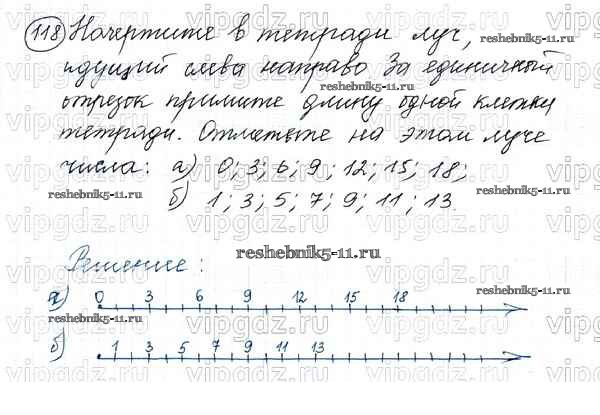 118 Начертите в тетради луч,
идущий слева направо За единичный
отрезок примите длину одной клетки
тетради. Отметьте на этом луче
числа: а) 0; 3; 6; 9; 12; 15; 18;
б) 1; 3; 5; 7; 9; 11; 13.
Решение:
а) 0 3 6 9 12 15 18
б) 1 3 5 7 9 11 13
reshebnik5-11.ru
reshebnik5-11.ru
reshebnik5-11.ru
reshebnik5-11.ru
reshebnik5-11.ru
vipgdz.ru